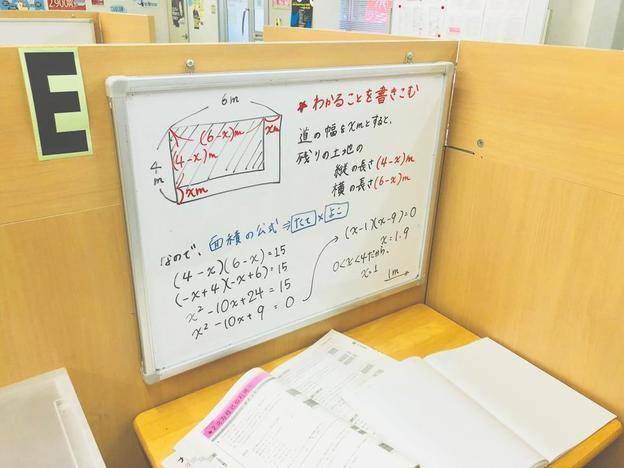 E
6m
(6-x)m
xm
(4-x)m
4
m
xm
*わかることを書きこむ
道の幅をxmとすると、
残りの土地の
縦の長さ(4-x)m
横の長さ(6-x)m
なので、面積の公式⇒たて×よこ
(4-x)(6-x)=15
(-x+4)(-x+6)=15
x²-10x+24=15
x²-10x+9=0
(x-1)(x-9)=0
x=1.9
0<x<4だから、
x=1
1m